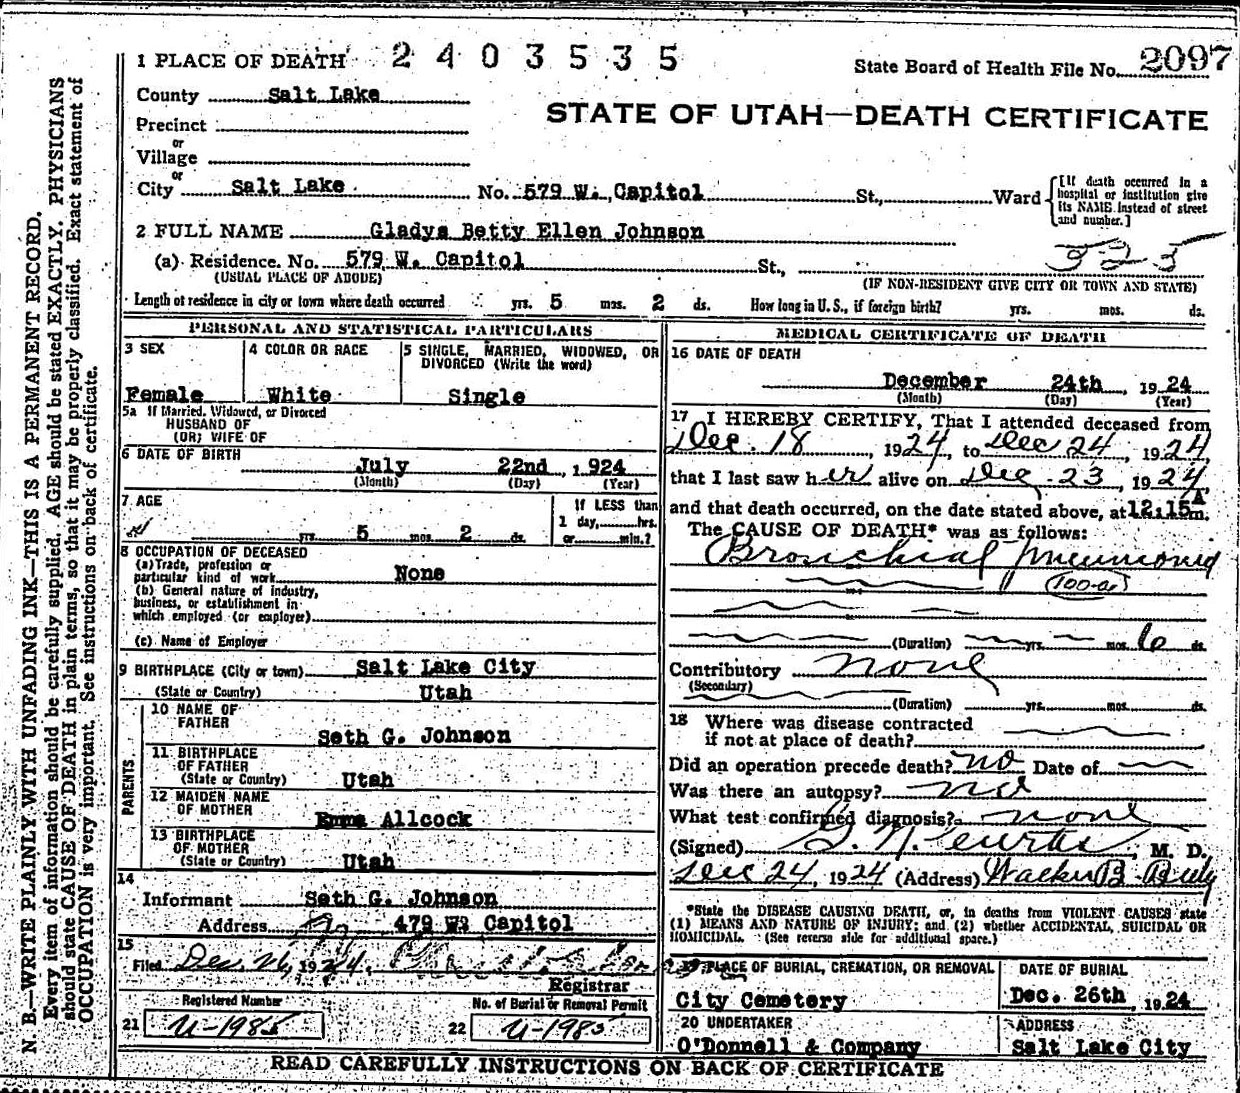 N. B.—WRITE PLAINLY WITH UNFADING INK—THIS IS A PERMANENT RECORD.
Every item of information should be carefully supplied. AGE should be stated EXACTLY. PHYSICIANS
should state CAUSE OF DEATH in plain terms, so that it may be properly classified. Exact statement of
OCCUPATION is very important. See instructions on back of certificate.
1 PLACE OF DEATH 2403535
State Board of Health File No. 2097
County Salt Lake
STATE OF UTAH—DEATH CERTIFICATE
Precinct
or
Village
or
City Salt Lake No. 579 W. Capitol St., Ward
[If death occurred in a
hospital or institution give
its NAME instead of street
and number.]
2 FULL NAME Gladys Betty Ellen Johnson
325
(a) Residence. No. 579 W. Capitol St.,
(USUAL PLACE OF ABODE) (IF NON-RESIDENT GIVE CITY OR TOWN AND STATE)
Length of residence in city or town where death occurred yrs. 5 mos. 2 ds. How long in U. S., if foreign birth? yrs. mos. ds.
PERSONAL AND STATISTICAL PARTICULARS
3 SEX
Female
4 COLOR OR RACE
White
5 SINGLE, MARRIED, WIDOWED, OR
DIVORCED (Write the word)
Single
5a If Married, Widowed, or Divorced
HUSBAND OF
(OR) WIFE OF
6 DATE OF BIRTH
July 22nd, 1924
(Month) (Day) (Year)
7 AGE
yrs 5 mos. 2 ds.
If LESS than
1 day, hrs.
or min.?
8 OCCUPATION OF DECEASED
(a) Trade, profession or
particular kind of work None
(b) General nature of industry,
business, or establishment in
which employed (or employer)
(c) Name of Employer
9 BIRTHPLACE (City or town) Salt Lake City
(State or Country) Utah
PARENTS
10 NAME OF
FATHER
Seth G. Johnson
11 BIRTHPLACE
OF FATHER
(State or Country) Utah
12 MAIDEN NAME
OF MOTHER
Emma Allcock
13 BIRTHPLACE
OF MOTHER
(State or Country) Utah
14
Informant Seth G. Johnson
Address 479 W. Capitol
15
Filed Dec. 26, 1924.
Registrar
Registered Number
21 U-1985
No. of Burial or Removal Permit
22 U-1985
MEDICAL CERTIFICATE OF DEATH
16 DATE OF DEATH
December 24th, 1924
(Month) (Day) (Year)
17 I HEREBY CERTIFY, That I attended deceased from
Dec. 18, 1924, to Dec 24, 1924,
that I last saw her alive on Dec. 23, 1924
and that death occurred, on the date stated above, at 12:15 A m.
The CAUSE OF DEATH* was as follows:
Bronchial Pneumonia
(100-a)
(Duration) yrs. mos. 6 ds.
Contributory none
(Secondary)
(Duration) yrs. mos. ds.
18 Where was disease contracted
if not at place of death?
Did an operation precede death? no Date of
Was there an autopsy? no
What test confirmed diagnosis? none
(Signed) G. N. Curtis, M. D.
Dec 24, 1924 (Address) Walker B. Bldg
*State the DISEASE CAUSING DEATH, or, in deaths from VIOLENT CAUSES state
(1) MEANS AND NATURE OF INJURY; and (2) whether ACCIDENTAL, SUICIDAL OR
HOMICIDAL. (See reverse side for additional space.)
PLACE OF BURIAL, CREMATION, OR REMOVAL
City Cemetery
DATE OF BURIAL
Dec. 26th, 1924
20 UNDERTAKER
O'Donnell & Company
ADDRESS
Salt Lake City
READ CAREFULLY INSTRUCTIONS ON BACK OF CERTIFICATE